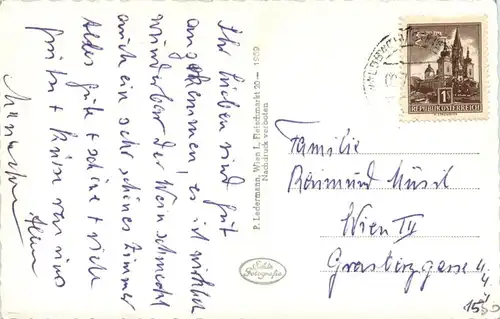 Ihr Lieben sind gut
angekommen, es ist wirklich
wunderbar der Wein schmeckt
auch ein sehr schönes Zimmer
Alles gute + schöne + viele
Grüße + Küsse von uns
allen
P. Ledermann, Wien I., Fleischmarkt 20 — 1962
Nachdruck verboten
Echte
Fotografie
1S
REPUBLIK ÖSTERREICH
Familie
Raimund Müssil
Wien IV
Grasberggasse 4